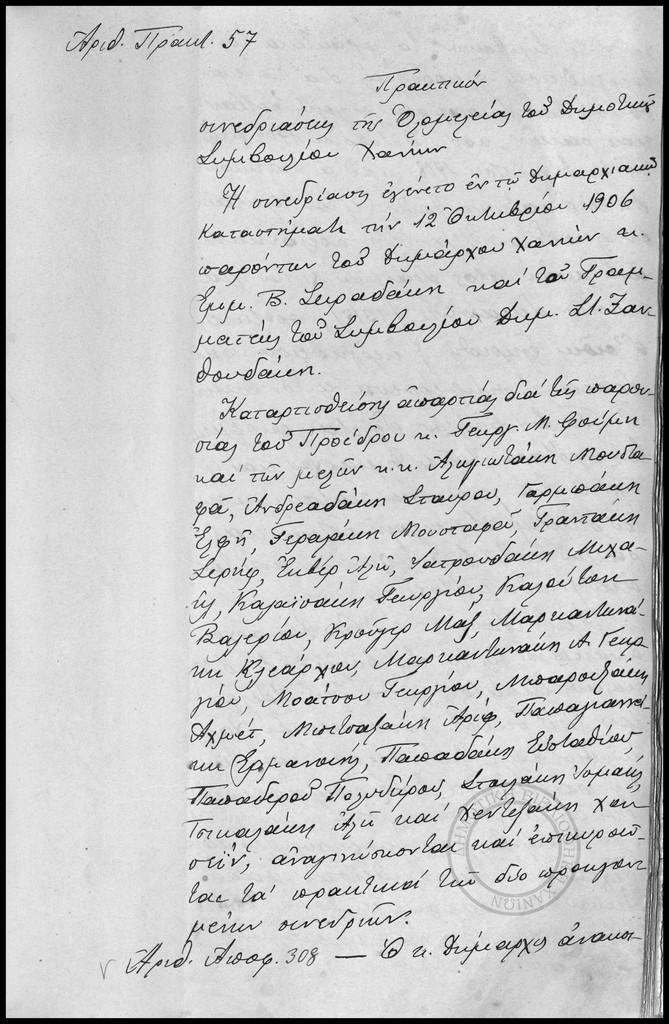 Ἀριθ. Πρακτ. 57
Πρακτικόν
συνεδριάσεως τῆς Ὁλομελείας τοῦ Δημοτικοῦ
Συμβουλίου Χανίων
Ἡ συνεδρίασις ἐγένετο ἐν τῷ Δημαρχιακῷ
Καταστήματι τήν 12 Ὀκτωβρίου 1906
παρόντων τοῦ Δημάρχου Χανίων κ.
Ἐμμ. Β. Σειραδάκη καί τοῦ Γραμ-
ματέως τοῦ Συμβουλίου Δημ. Στ. Ξαν-
θουδάκη.
Καταρτισθείσης ἀπαρτίας διά τῆς παρου-
σίας τοῦ Προέδρου κ. Γεωργ. Μ. Φούμη
καί τῶν μελῶν κ.κ. Ἀληγιωτάκη Μουστα-
φᾶ, Ἀνδρεαδάκη Σταύρου, Γαρμπάκη
Ἐλφῆ, Γεραράκη Μουσταφᾶ, Γραπτάκη
Σερήφ, Ἐκβέρ Ἀλῆ, Ἰατρουδάκη Μιχα-
ήλ, Καλαϊσάκη Γεωργίου, Καλούτση
Βαλερίου, Κρούγερ Μάξ, Μαρκαντωνά-
κη Κλεάρχου, Μαρκαντωνάκη Α. Γεωρ-
γίου, Μοάτσου Γεωργίου, Μπαρουξάκη
Ἀχμέτ, Μπιτσαξάκη Ἀρίφ, Παπαγιαννά-
κη Ἑρμανουήλ, Παπαδάκη Εὐσταθίου,
Παπαδεροῦ Πολυδώρου, Σταϊλάκη Ἰσμαήλ,
Τσικαλάκη Ἀλῆ καί Χεντεξάκη Χου-
σεΐν, ἀναγινώσκονται καί ἐπικυροῦν-
ται τά πρακτικά τῶν δύο προηγου-
μένων συνεδριῶν.
Ἀριθ. Ἀποφ. 308 — Ὁ κ. Δήμαρχος ἀνακοι-